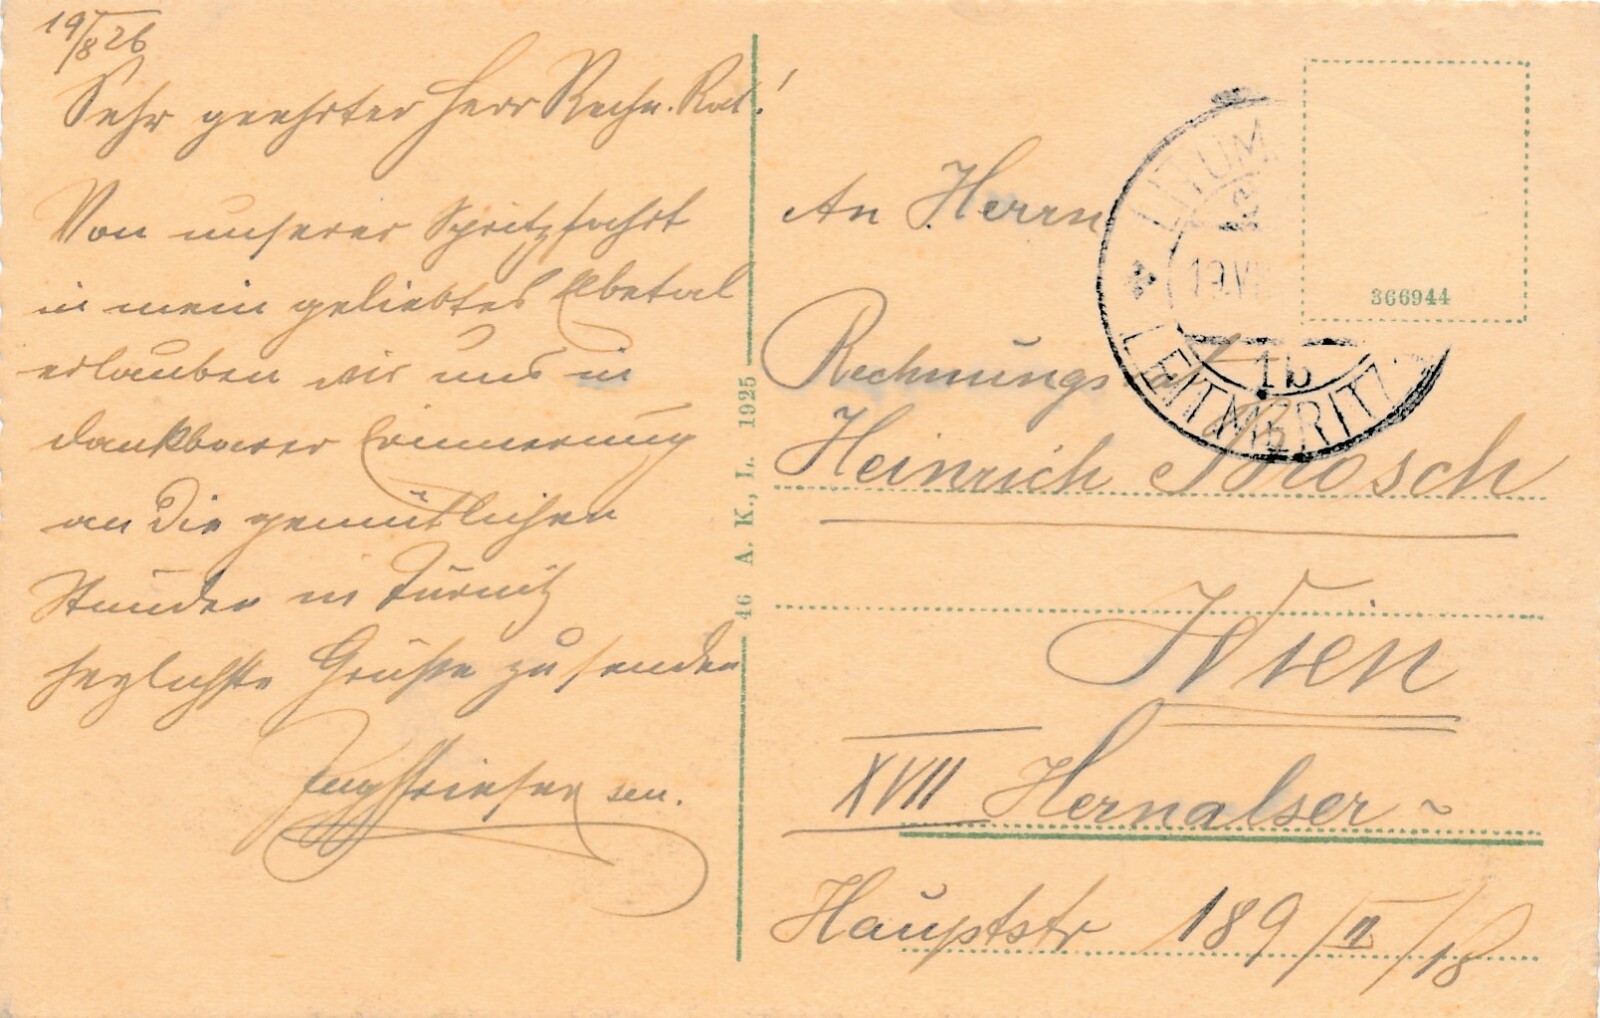 19/8 26
Sehr geehrter Herr Rechn. Rat!
Von unserer Spritzfahrt
in mein geliebtes Elbetal
erlauben wir uns in
dankbarer Erinnerung
an die gemütlichen
Stunden in Türnitz
herzlichste Grüße zu senden
sen.
46 A. K., L. 1925
An Herrn
Rechnungsrat
Heinrich Brosch
Wien
XVII Hernalser-
Hauptstr 189/II/18
366944
LITOM
19.VII
1b
LEITMERITZ